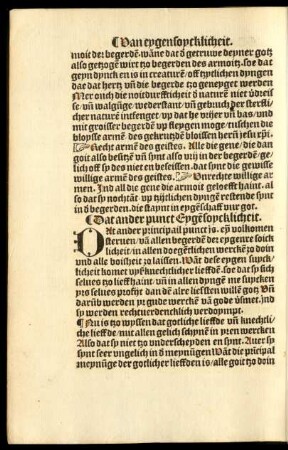 ¶Van eygensoycklicheit.
moit der begerden. wāne dat d' getruwe deyner gotz
also getzogē wirt tzo begerden des armoitz. soe dat
geyn dynck en is in creaturē off tzytlichen dyngen
dae dat hertz vn̄ die begerde tzo geneyget werden
Mer ouch die noitdurfftich d' naturē niet vdrÿe
se vn̄ walgūge wederstant vn̄ gebruch der sterfli
cher naturē intfenget vp dat he vrijer vn̄ bas vnd
mit groisser begerdē vp steygen moge tuschen die
bloysse armē des gekrutzdē bloissen herrē jesu cristi.
Recht armē des geistes. Alle die gene die dan
goit also besitzt vn̄ synt also vrij in der begerdē ge
lich off sy des niet en beseissen. dat synt die gewisse
willige armē des geistes. Vnrechte willige ar
men. Ind all die gene die armoit geloefft haint. al
so dat sy nochtāt vp tzijtlichen dyngē restende synt
in d' begerden. die staynt in eygēschafft vur got.
¶Dat ander punct Eygēsoycklicheit.
Dat ander principail punct is. eyn volkomen
sternen vā allen begerdē der eygenre soick
licheit in allen doegētlichen wercke tzo doin
vnd alle boisheit tzo laissen. Wāt dese eygen suyck
licheit komet vyß knechtlicher liefden. soe dat sy sich
selues tzo lieff haint. vn̄ in allen dyngē me suycken
yrs selues profijt dan dē alre lieffsten willē gotz. Vn̄
darūb werden yr gude werckē vā gode v'smet. Ind
sy werden rechtuerdencklich verdoympt.
¶Nu is tzo wyssen dat gotliche lieffde vn̄ knechtli
che lieffde mit allen gelich schynēt in yren wercken
Also dat sy niet tzo vnderscheyden en synt. Auer sy
synt seer vngelich in d' meynūgen Wāt die prīcipal
meynūge der gotlicher lieffden is alle goit tzo doin